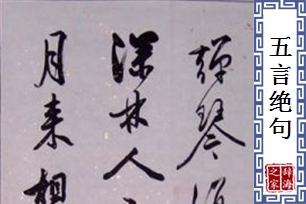 弹琴
深林人
月来相
五言绝句
辞海
之家